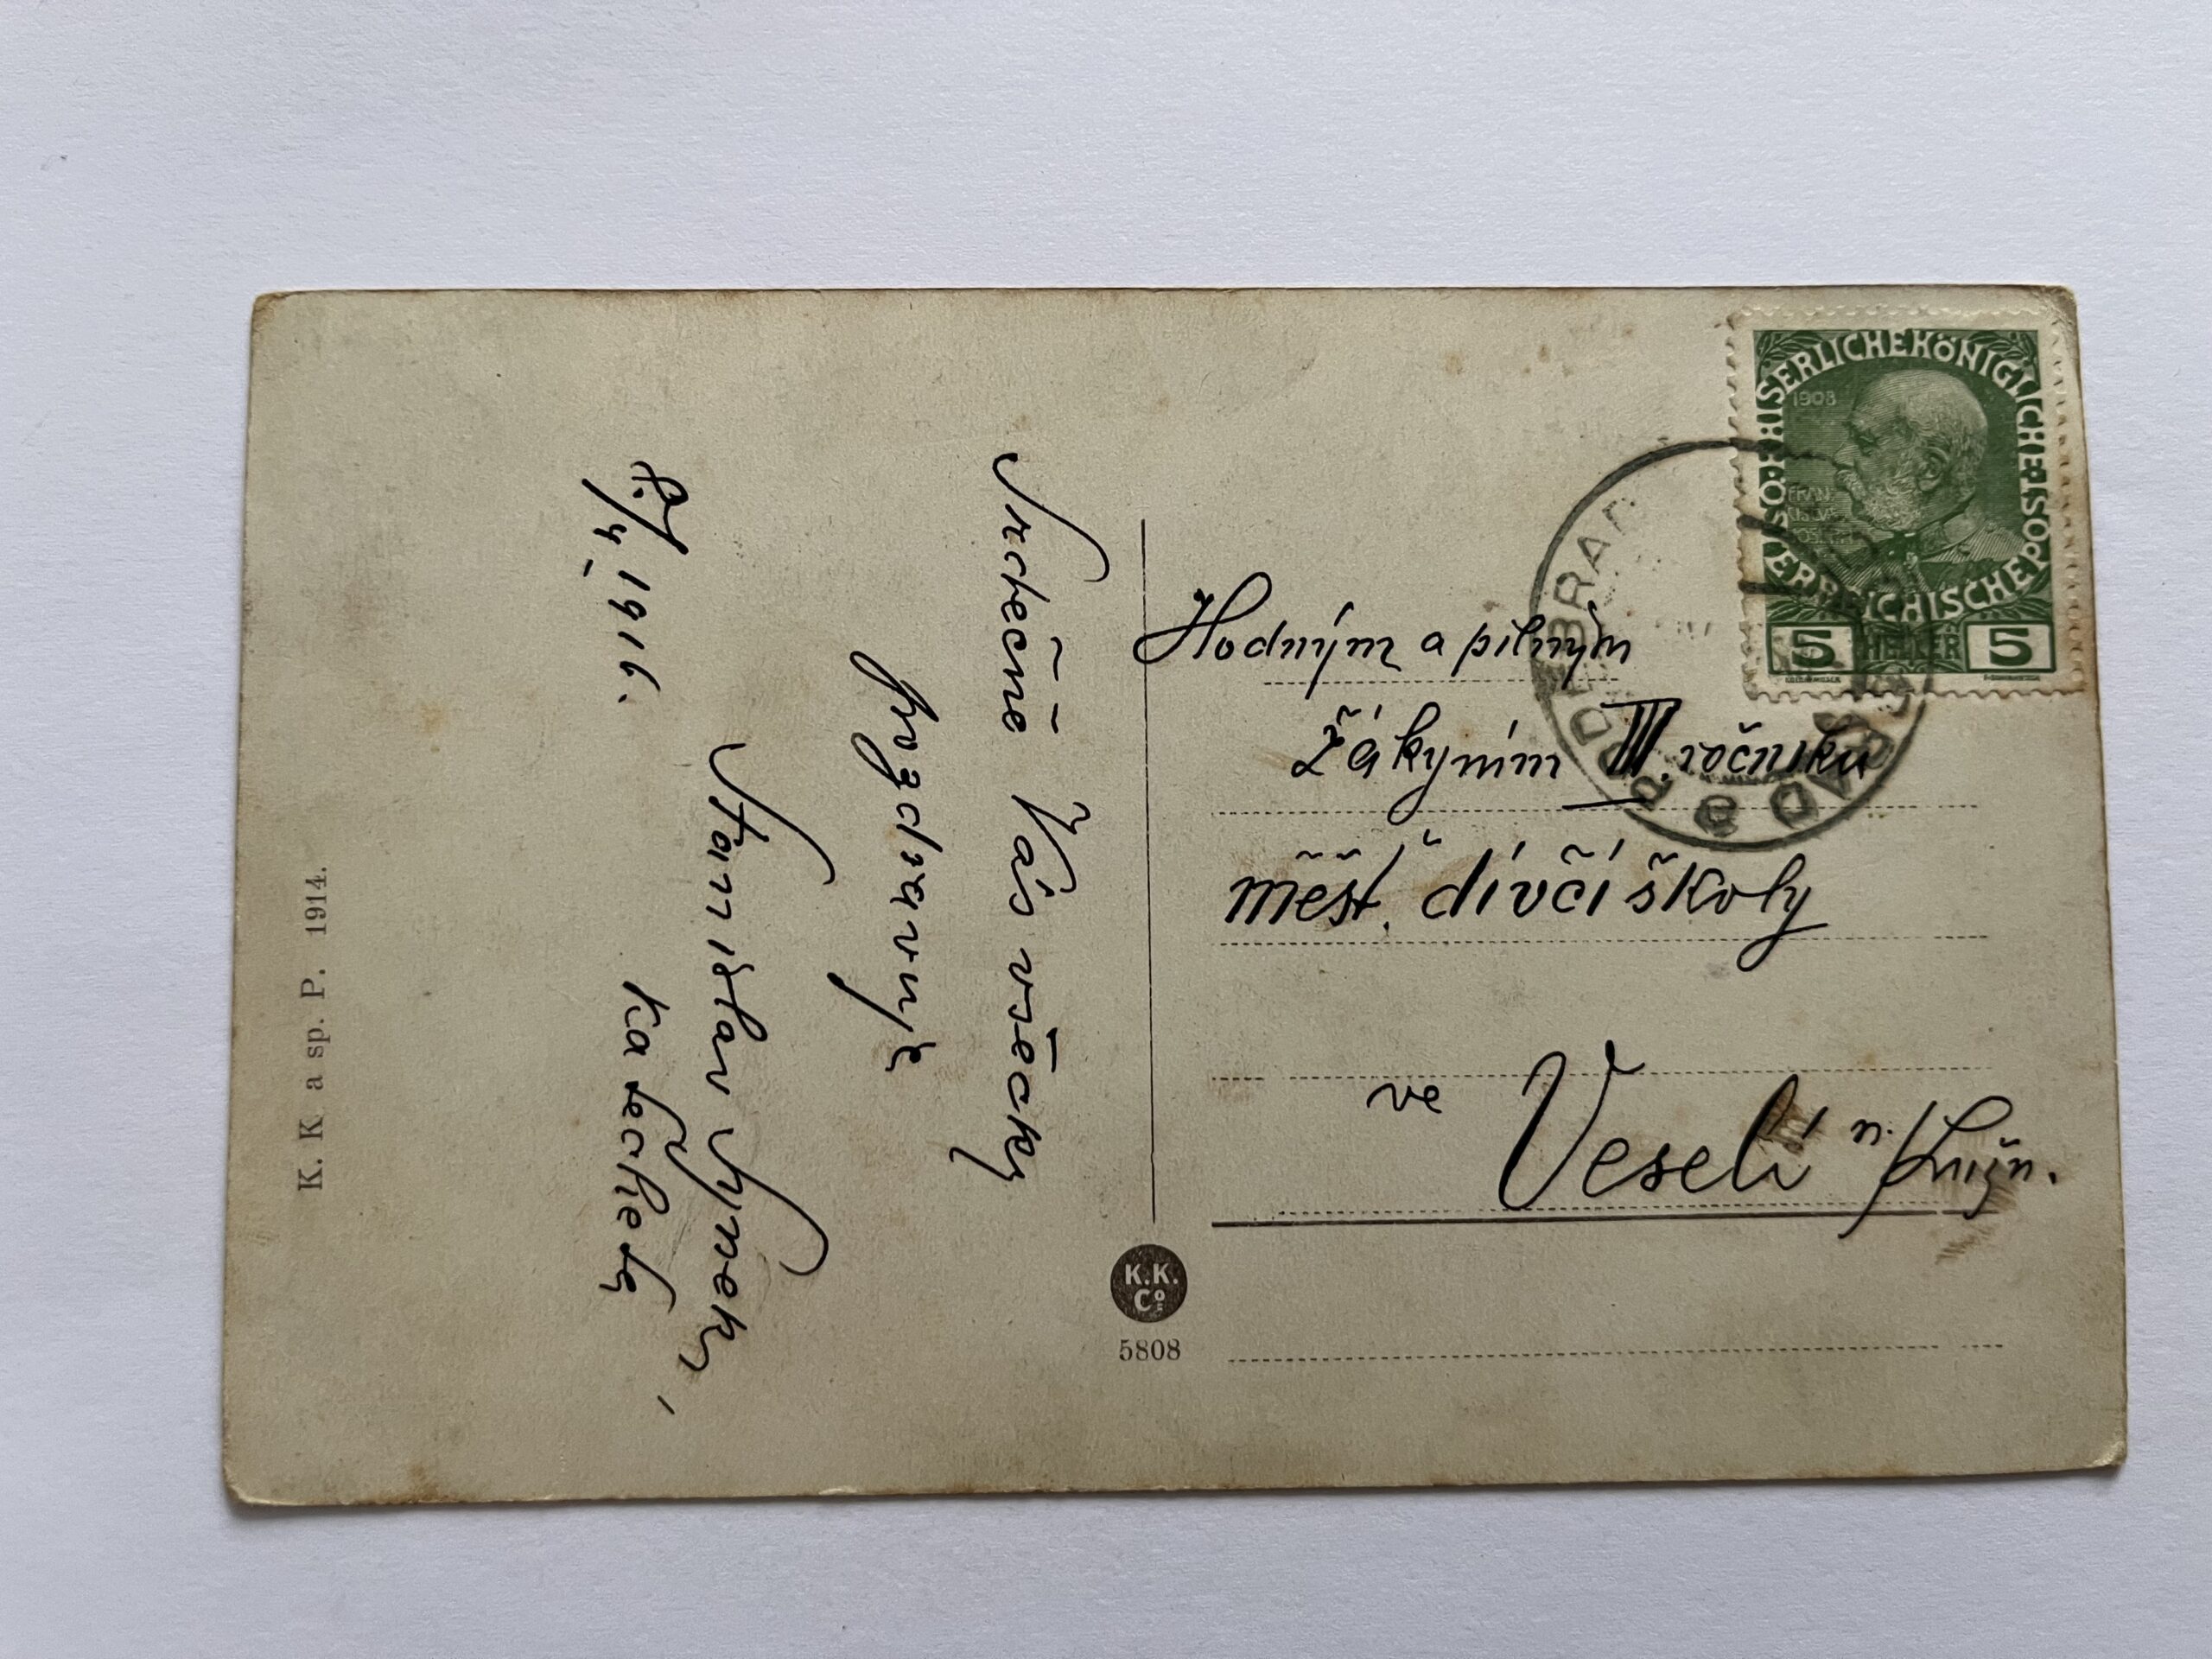 Srdečně Vás všecky
pozdravuje
Stanislav Synek,
katecheta
8./4 1916.
K. K. a sp. P. 1914.
Hodným a pilným
Žákyním III. ročníku
měšť. dívčí školy
ve Veselí n./Lužn.
K.K.
Co
5808
KAISERLICHE KÖNIGLICHE ÖSTERREICHISCHE POST
1908
FRAN
CISCVS
IOSEPH I
5 HELLER 5